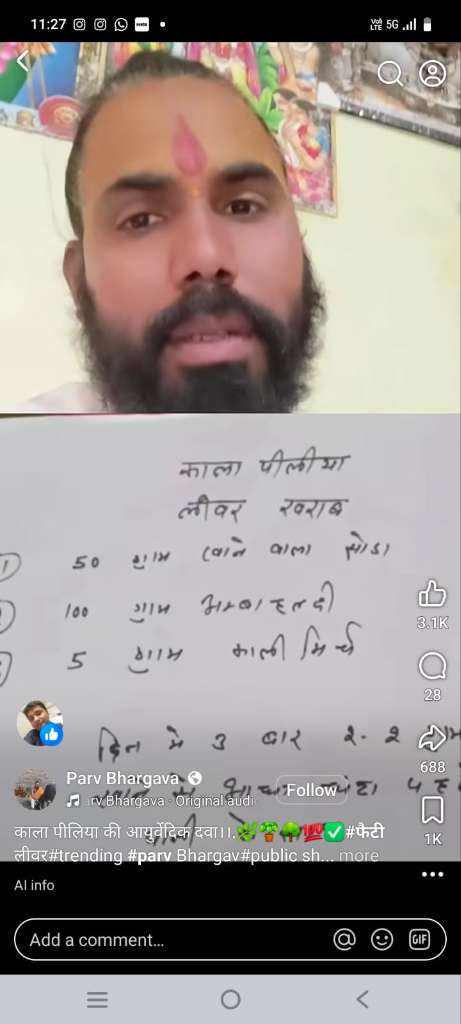 11:27
VoI LTE 5G
काला पीलीया
लीवर खराब
50 ग्राम खाने वाला सोडा
100 ग्राम अम्बा हल्दी
5 ग्राम काली मिर्च
दिन मे 3 बार 2-2
3.1K
28
688
1K
Parv Bhargava
Follow
arv Bhargava · Original audi
काला पीलिया की आयुर्वेदिक दवा।।.🌿🪴🌳💯✅#फैटी
लीवर#trending #parv Bhargav#public sh... more
AI info
Add a comment...
GIF